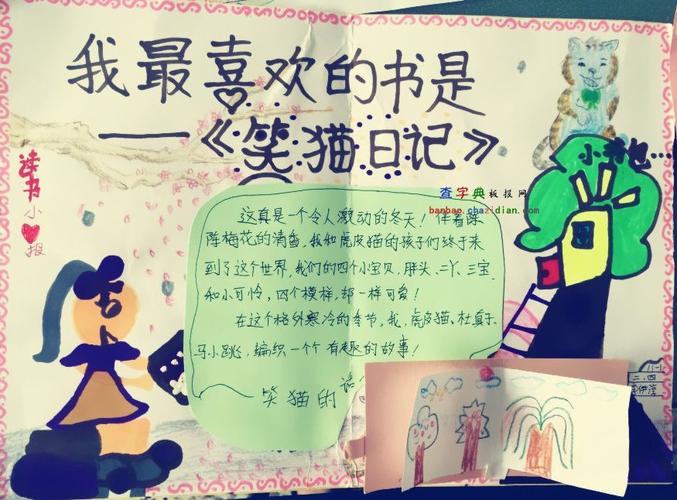 我最喜欢的书是
——《笑猫日记》
读书小报
小书包...
查字典板报网
banbao.chazidian.com
这真是一个令人激动的冬天！伴着阵
阵梅花的清香，我和虎皮猫的孩子们终于来
到了这个世界，我们的四个小宝贝，胖头、二丫、三宝
和小可怜，四个模样，却一样可爱！
在这个格外寒冷的季节，我，虎皮猫，杜真子
马小跳，编织一个个有趣的故事！
笑猫的话
二、四